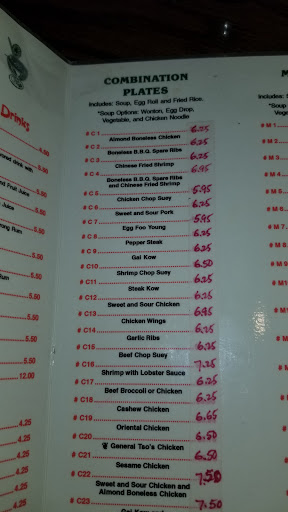 Drinks
5.50
5.50
5.50
5.50
5.50
5.50
5.50
5.50
12.00
4.25
4.25
4.25
4.25
COMBINATION
PLATES
Includes: Soup, Egg Roll and Fried Rice.
*Soup Options: Wonton, Egg Drop,
Vegetable, and Chicken Noodle
# C 1 6.25
Almond Boneless Chicken
# C 2 6.25
Boneless B.B.Q. Spare Ribs
# C 3 6.25
Chinese Fried Shrimp
# C 4 6.95
Boneless B.B.Q. Spare Ribs
and Chinese Fried Shrimp
# C 5 5.95
Chicken Chop Suey
# C 6 6.25
Sweet and Sour Pork
# C 7 5.95
Egg Foo Young
# C 8 6.25
Pepper Steak
# C 9 6.25
Gai Kow
# C10 6.50
Shrimp Chop Suey
# C11 6.25
Steak Kow
# C12 6.25
Sweet and Sour Chicken
# C13 6.95
Chicken Wings
# C14 6.25
Garlic Ribs
# C15 6.25
Beef Chop Suey
# C16 7.25
Shrimp with Lobster Sauce
# C17 6.25
Beef Broccoli or Chicken
# C18 6.25
Cashew Chicken
# C19 6.65
Oriental Chicken
# C20 6.50
General Tao's Chicken
# C21 6.50
Sesame Chicken
# C22 7.50
Sweet and Sour Chicken and
Almond Boneless Chicken
# C23 7.50
# M 1
# M 2
# M 3
# M 4
# M 5